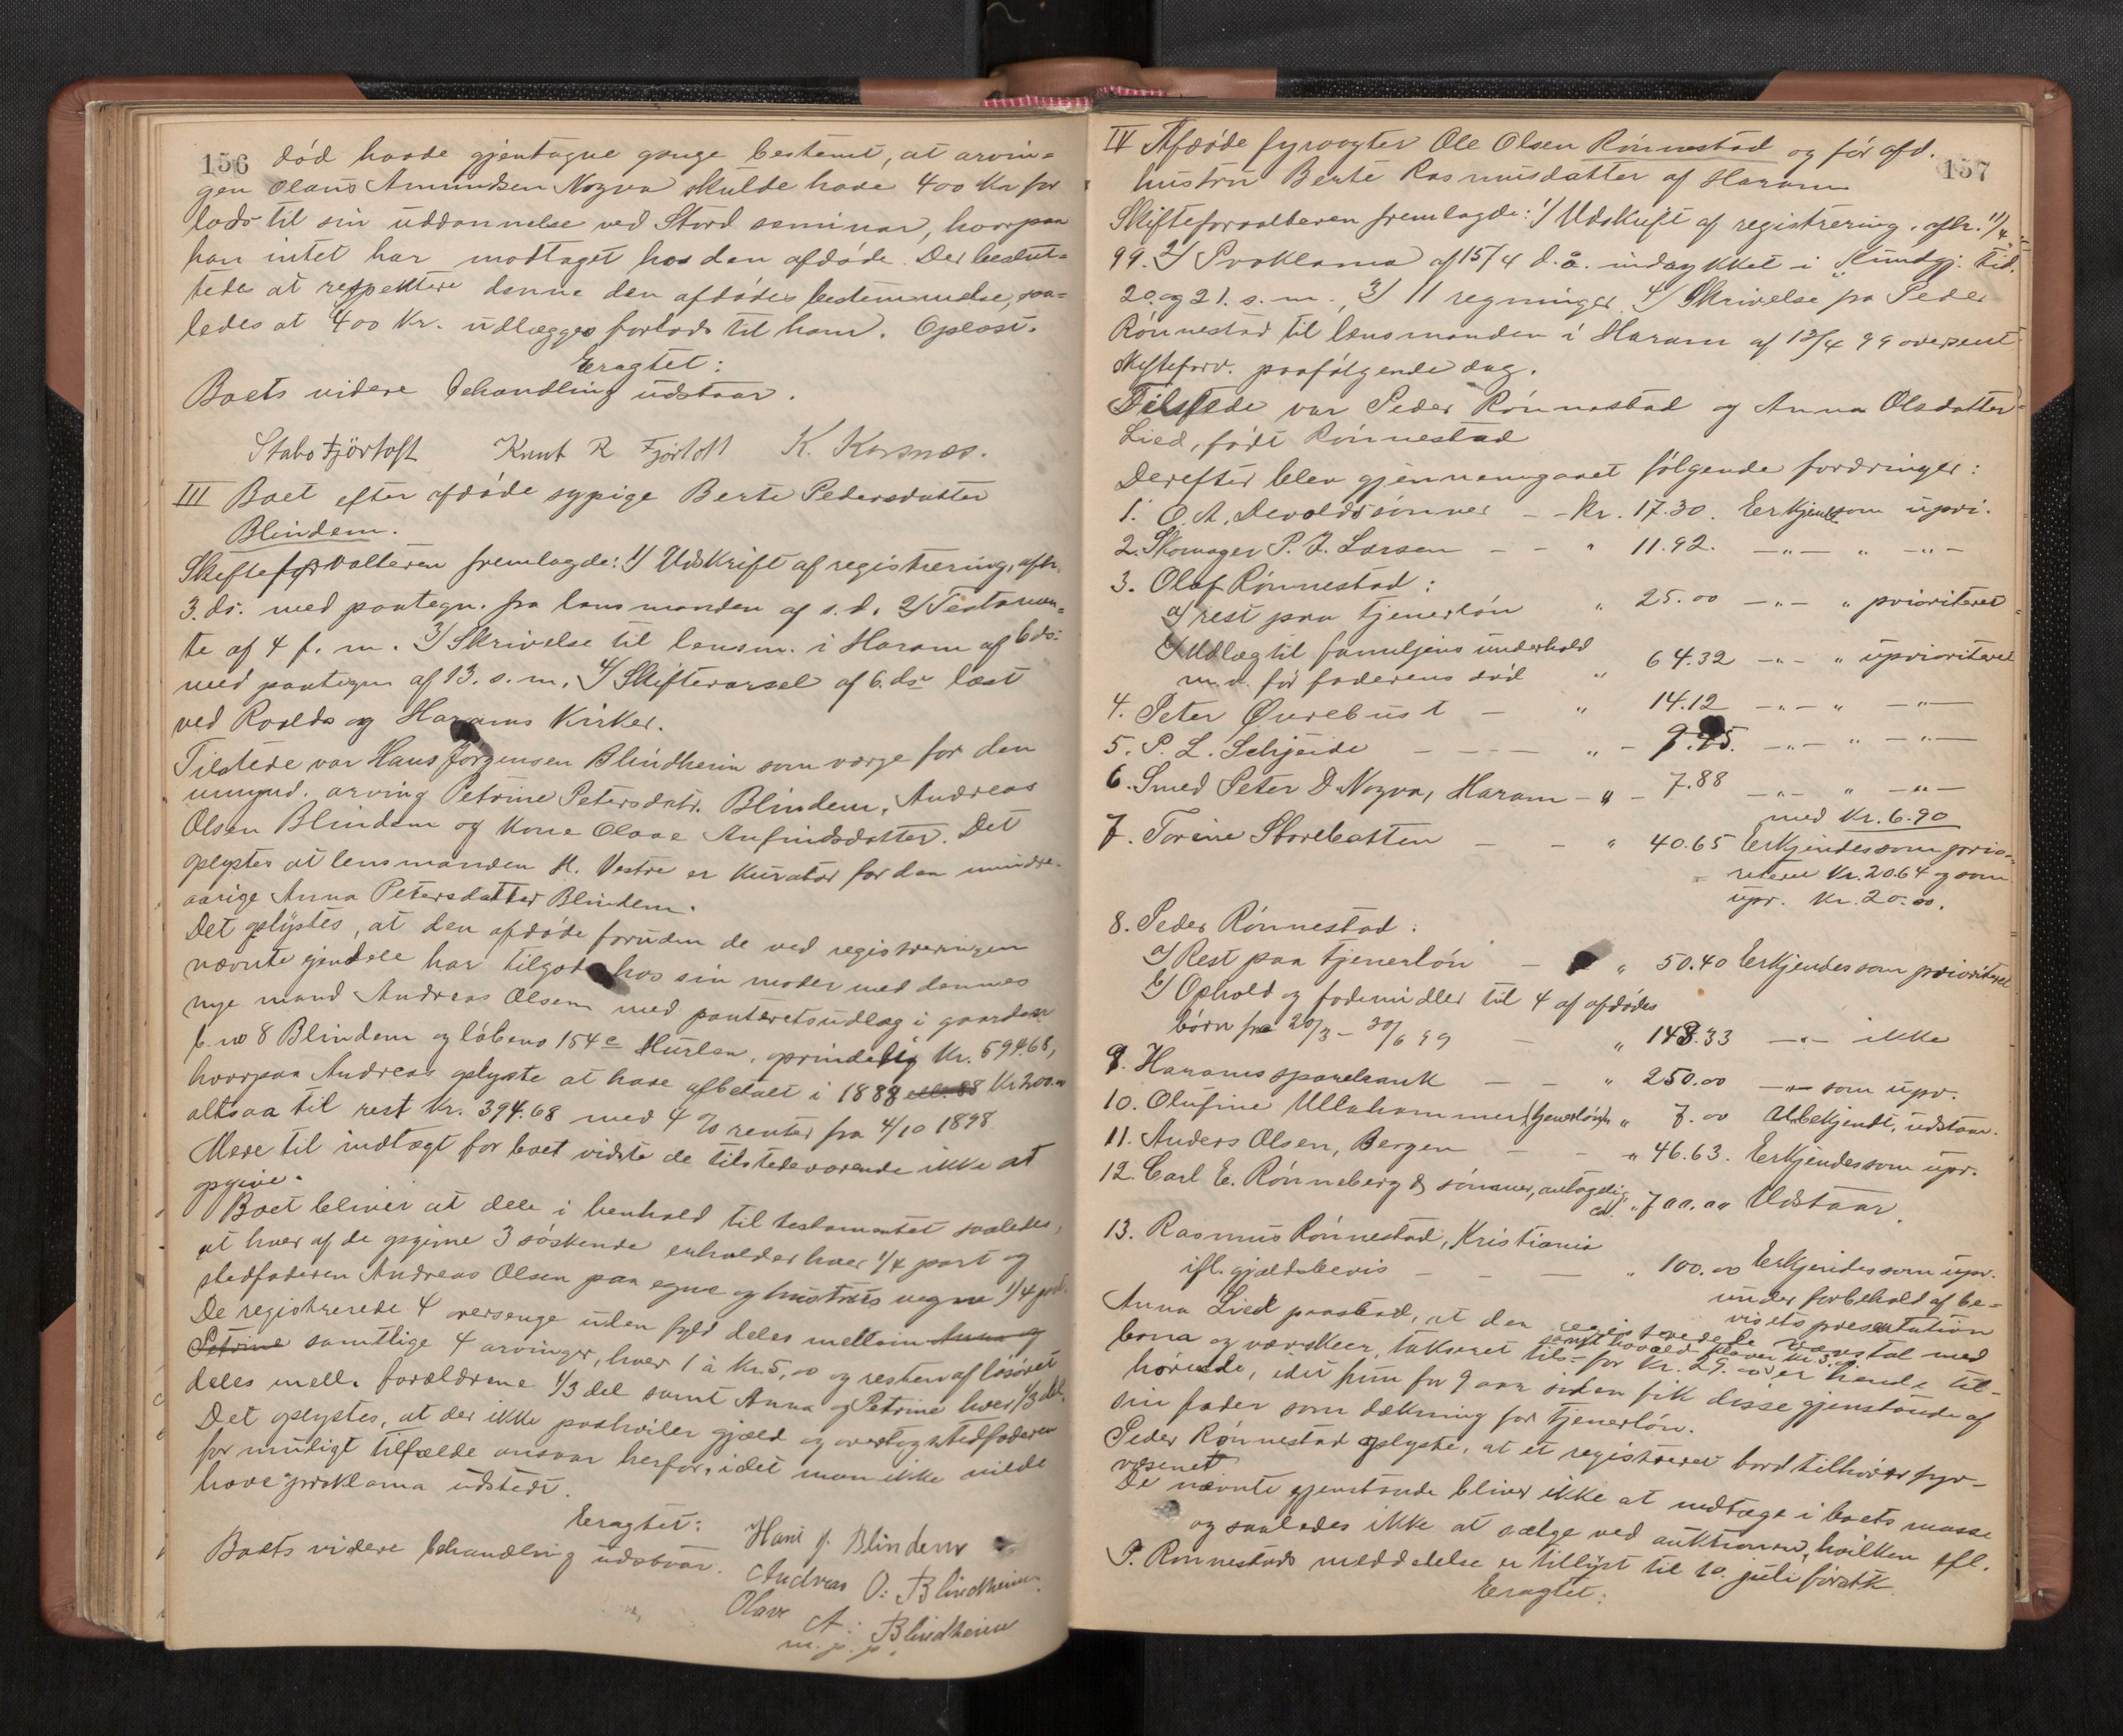 156
død havde gjentagne gange bestemt, at arvin=
gen Olaus Amundsen Nogva skulde have 400 Kr for
lods til sin uddannelse ved Stord seminar, hvorpaa
han intet har modtaget hos den afdøde. Der beslut=
tede at respektere denne den afdødes bestemmelse, saa=
ledes at 400 Kr. udlægges forlods til ham. Oplæst.
Eragtet:
Boets videre behandling udstaar.
Stabo Fjörtoft Knut R Fjörtoft K. Karsnæs.
III Boet efter afdøde sypige Berte Pedersdatter
Blindem.
Skifteforvalteren fremlagde: 1/ Udskrift af registrering, afh.
3. ds. med paategn. fra lensmanden af s. d. 2/ Testamen=
te af 4 f. m. 3/ Skrivelse til lensm. i Haram af 6 ds.
med paategn af 13. s. m. 4/ Skiftevarsel af 6. ds læst
ved Roalds og Harams Kirker.
Tilstede var Hans Jørgensen Blindheim som værge for den
umynd. arving Petrine Petersdatr. Blindem, Andreas
Olsen Blindem og Kone Olave Anfindsdatter. Det
oplystes at lensmanden H. Vestre er Kurator for den mindre-
aarige Anna Petersdatter Blindem.
Det oplystes, at den afdøde foruden de ved registreringen
nævnte eiendele har tilgode hos sin moder med dennes
nye mand Andreas Olsen med panteretsudlæg i gaarden
b. no 8 Blindem og løbeno 154 c Hurlen, oprindelig Kr. 594.68,
hvorpaa Andreas oplyste at have afbetalt i 1888 Kr 200.00
altsaa til rest Kr. 394.68 med 4 % renter fra 4/10 1898
Mere til indtægt for boet vidste de tilstedeværende ikke at
opgive.
Boet bliver at dele i henhold til testamentet saaledes,
at hver af de opgivne 3 søskende erholder hver 1/4 part og
stedfaderen Andreas Olsen paa egne og hustrus vegne 1/4 part.
De registrerede 4 oversenge uden fyld deles mellem Anna og
Petrine samtlige 4 arvinger, hver 1 à Kr. 5,00 og resten af løsøret
deles mell. forældrene 1/3 del samt Anna og Petrine hver 1/3 del.
Det oplystes, at der ikke paahviler gjæld og overtog stedfaderen
for muligt tilfælde ansvar herfor, idet man ikke vilde
have proklama udstedt.
Eragtet:
Boets videre behandling udstaar.
Hans J. Blindem
Andreas O: Blindheim
Olave A: Blindheim
m. p. p.
157
IV Afdøde fyrvogter Ole Olsen Rønnestad og før afd.
hustru Berte Rasmusdatter af Haram
Skifteforvalteren fremlagde: 1/ Udskrift af registrering, afh. 11/4
99. 2/ Proklama af 15/4 d. å. indrykket i "Kundgj. tid."
20. og 21. s. m. 3/ 11 regninger 4/ Skrivelse fra Peder
Rønnestad til lensmanden i Haram af 13/4 99 oversent
skifteforv. paafølgende dag.
Tilstede var Peder Rønnestad og Anna Olsdatter
Lied, født Rønnestad
Derefter blev gjennemgaaet følgende fordringer:
1. O. A. Devolds sønner - - Kr. 17.30. Erkjendes som upri.
2. Skomager P. J. Larsen - - " 11.92. -"- " -"-
3. Olaf Rønnestad:
a/ rest paa tjenerløn " 25.00 -"- " prioriteret
b/ Udlæg til familjens underhold
m. v. før faderens død " 64.32 -"- " uprioriteret
4. Peter Øurebust - " 14.12 -"- " -"-
5. P. L. Schjeide - - - " - 9.45. -"- " -"-
6. Smed Peter D. Nogva, Haram - " - 7.88 -"- " -"-
med Kr. 6.90
7. Torine Storebotten - - " 40.65 Erkjendes som prio-
riteret Kr. 20.64 og som
upr. Kr. 20.00.
8. Peder Rønnestad:
a/ Rest paa tjenerløn - " 50.40 Erkjendes som prioriteret
b/ Ophold og fødemidler til 4 af afdødes
børn fra 20/3 - 30/6 99 - " 148.33 -"- ikke
9. Harams sparebank - - " 250.00 -"- som upr.
10. Olufine Ullahammer (tjenerløn) " 7.00 Ubekjendt, udstaar.
11. Anders Olsen, Bergen - - " 46.63. Erkjendes som upr.
12. Carl E. Rønneberg & sønner, antagelig
ca. " 700.00 Udstaar.
13. Rasmus Rønnestad, Kristiania
ifl. gjældsbevis - - - " 100.00 Erkjendes som upr.
under forbehold af be=
visets presentation
Anna Lied paastod, at den registrerede vævstol med
samt hovedklaver Kr 3.00
bona og vævskeer, takseret tils. for Kr. 29.00 er hende til-
hørende, idet hun for 9 aar siden fik disse gjenstande af
sin fader som dækning for tjenerløn.
Peder Rønnestad oplyste, at et registreret bord tilhører fyr-
væsenet
De nævnte gjenstande bliver ikke at indtage i boets masse
og saaledes ikke at sælge ved auktionen, hvilken ifl.
P. Rønnestads meddelelse er tillyst til 10. juli førstk.
Eragtet: